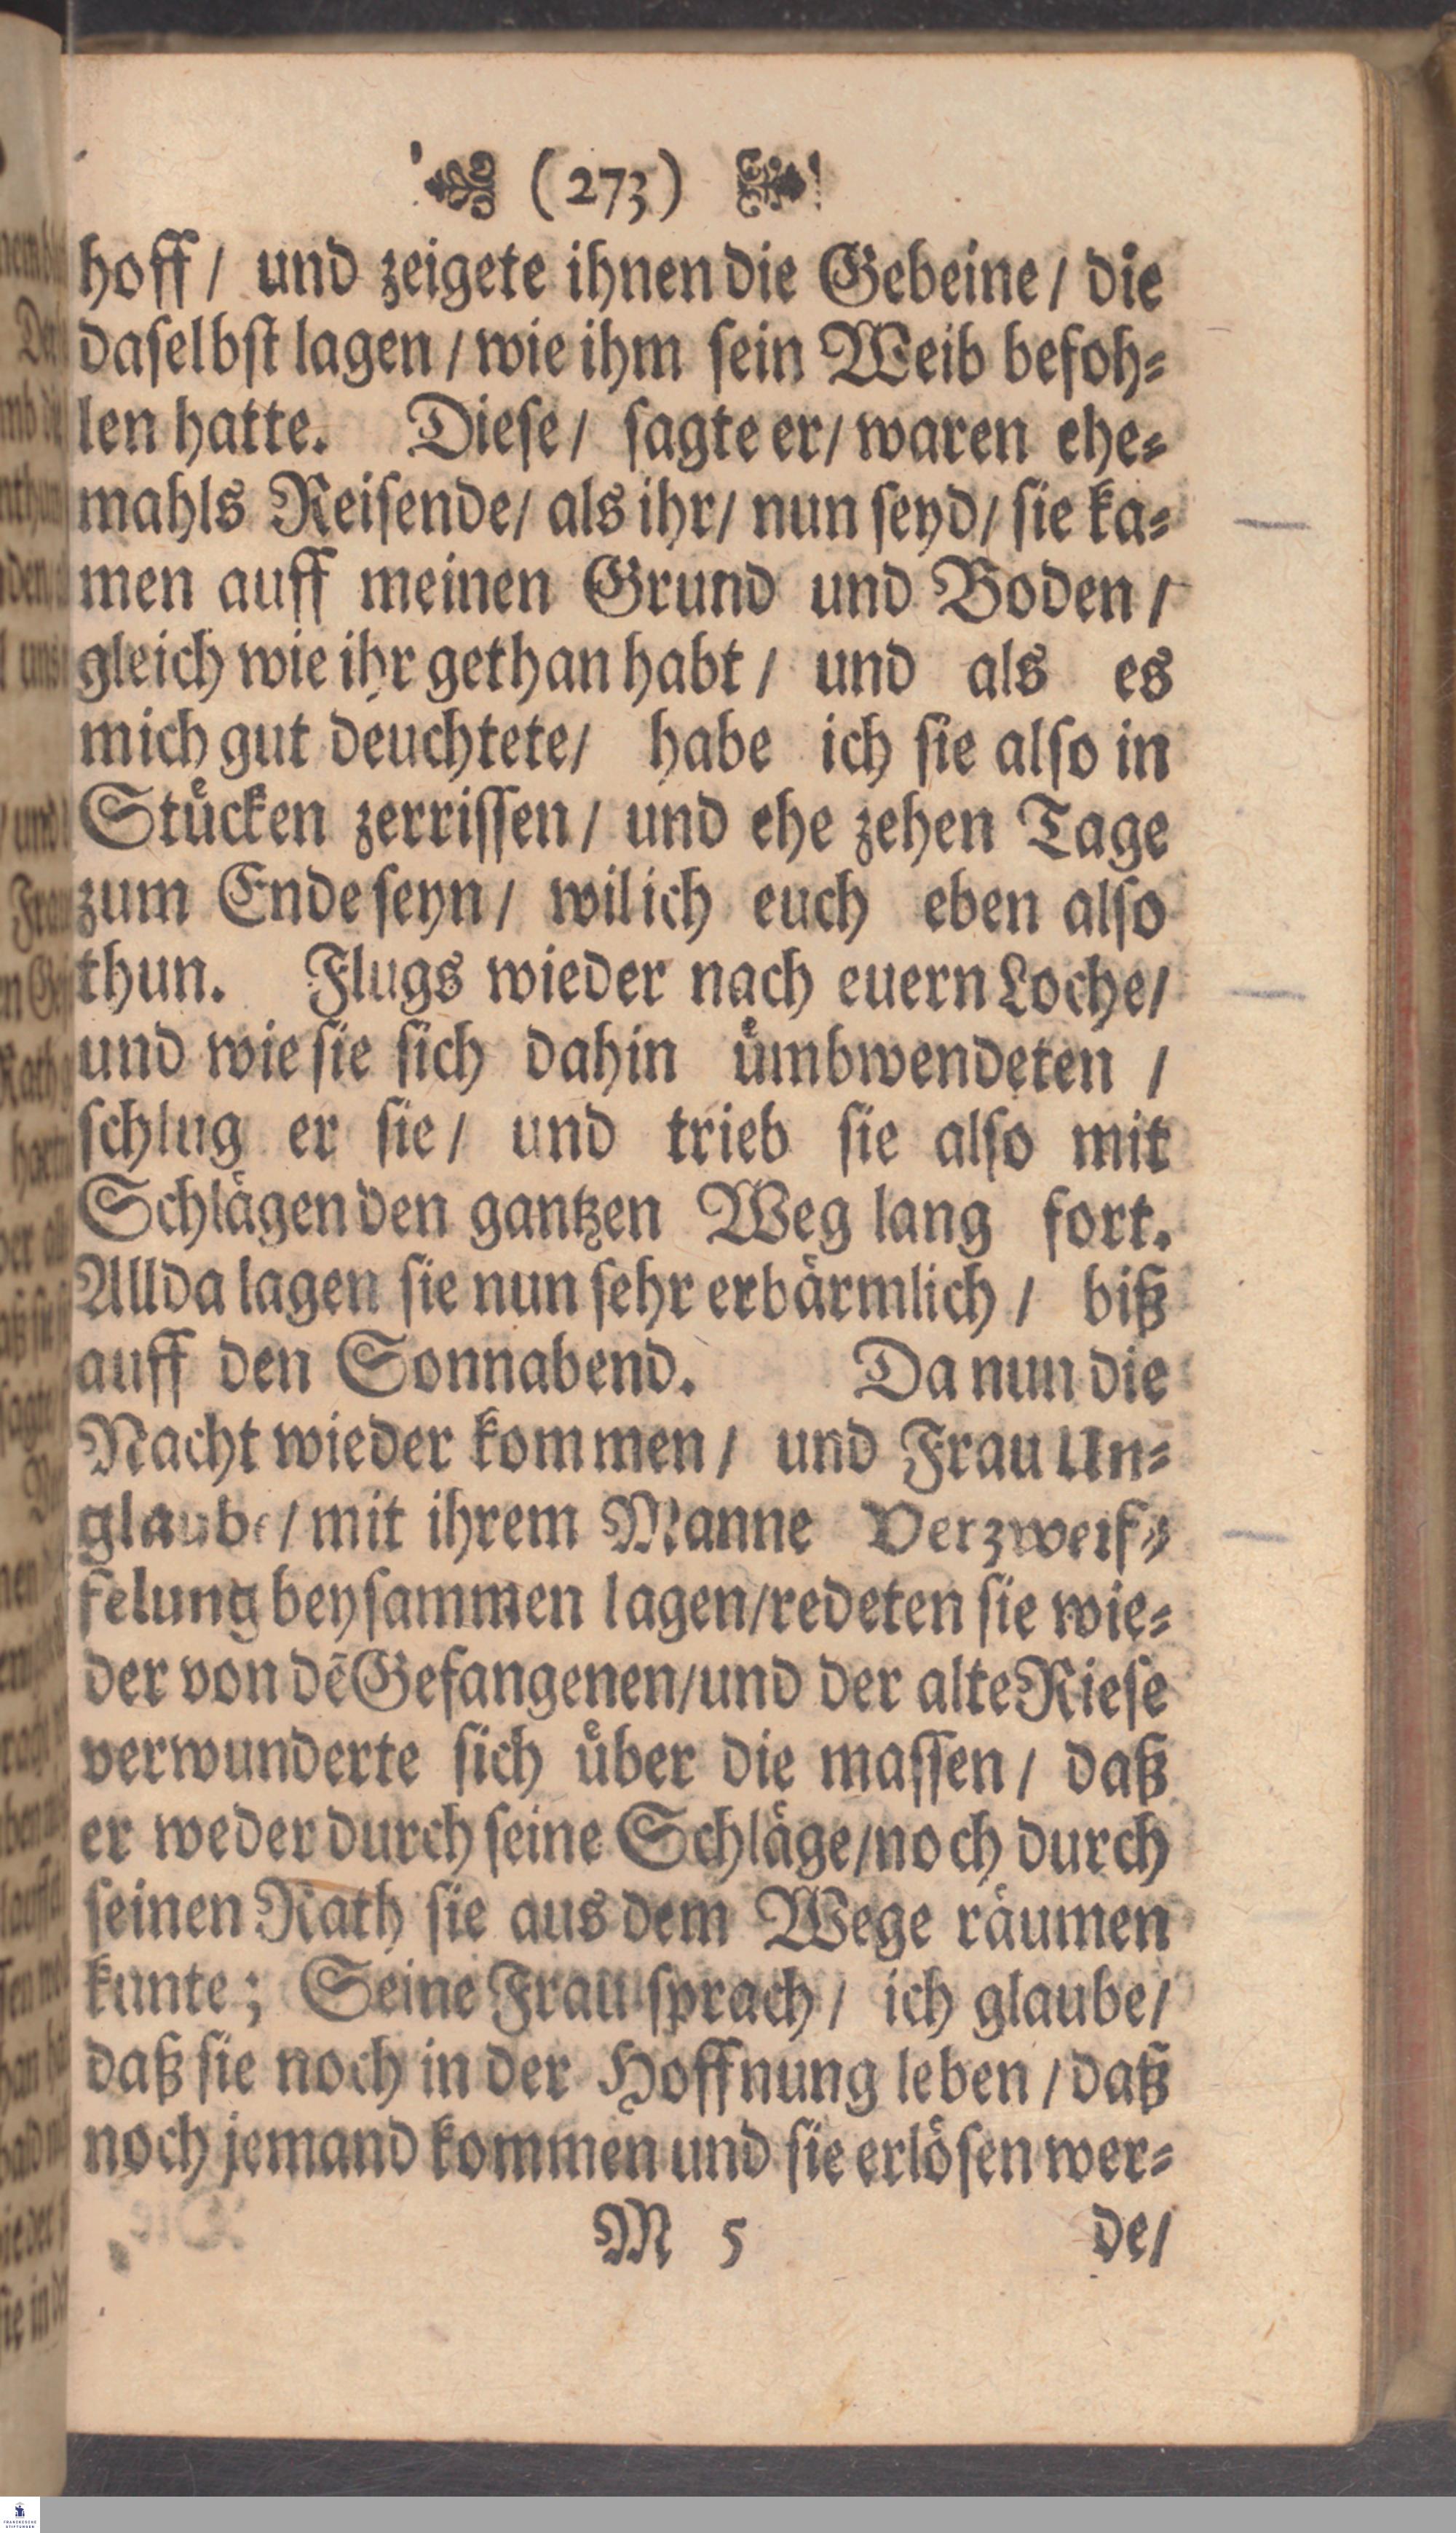 (273)
hoff / und zeigete ihnen die Gebeine / die
daſelbſt lagen / wie ihm ſein Weib befoh⸗
len hatte. Dieſe / ſagte er / waren ehe⸗
mahls Reiſende / als ihr / nun ſeyd / ſie ka⸗
men auff meinen Grund und Boden /
gleich wie ihr gethan habt / und als es
mich gut deuchtete / habe ich ſie alſo in
Stuͤcken zerriſſen / und ehe zehen Tage
zum Ende ſeyn / wil ich euch eben alſo
thun. Flugs wieder nach euern Loche /
und wie ſie ſich dahin uͤmbwendeten /
ſchlug er ſie / und trieb ſie alſo mit
Schlaͤgen den gantzen Weg lang fort.
Allda lagen ſie nun ſehr erbaͤrmlich / biß
auff den Sonnabend. Da nun die
Nacht wieder kommen / und Frau Un⸗
glaube / mit ihrem Manne Verzweif⸗
felung beyſammen lagen / redeten ſie wie⸗
der von dẽ Gefangenen / und der alte Rieſe
verwunderte ſich uͤber die maſſen / daß
er weder durch ſeine Schlaͤge / noch durch
ſeinen Rath ſie aus dem Wege raͤumen
kunte; Seine Frau ſprach / ich glaube /
daß ſie noch in der Hoffnung leben / daß
noch jemand kommen und ſie erloͤſen wer⸗
M 5 de /